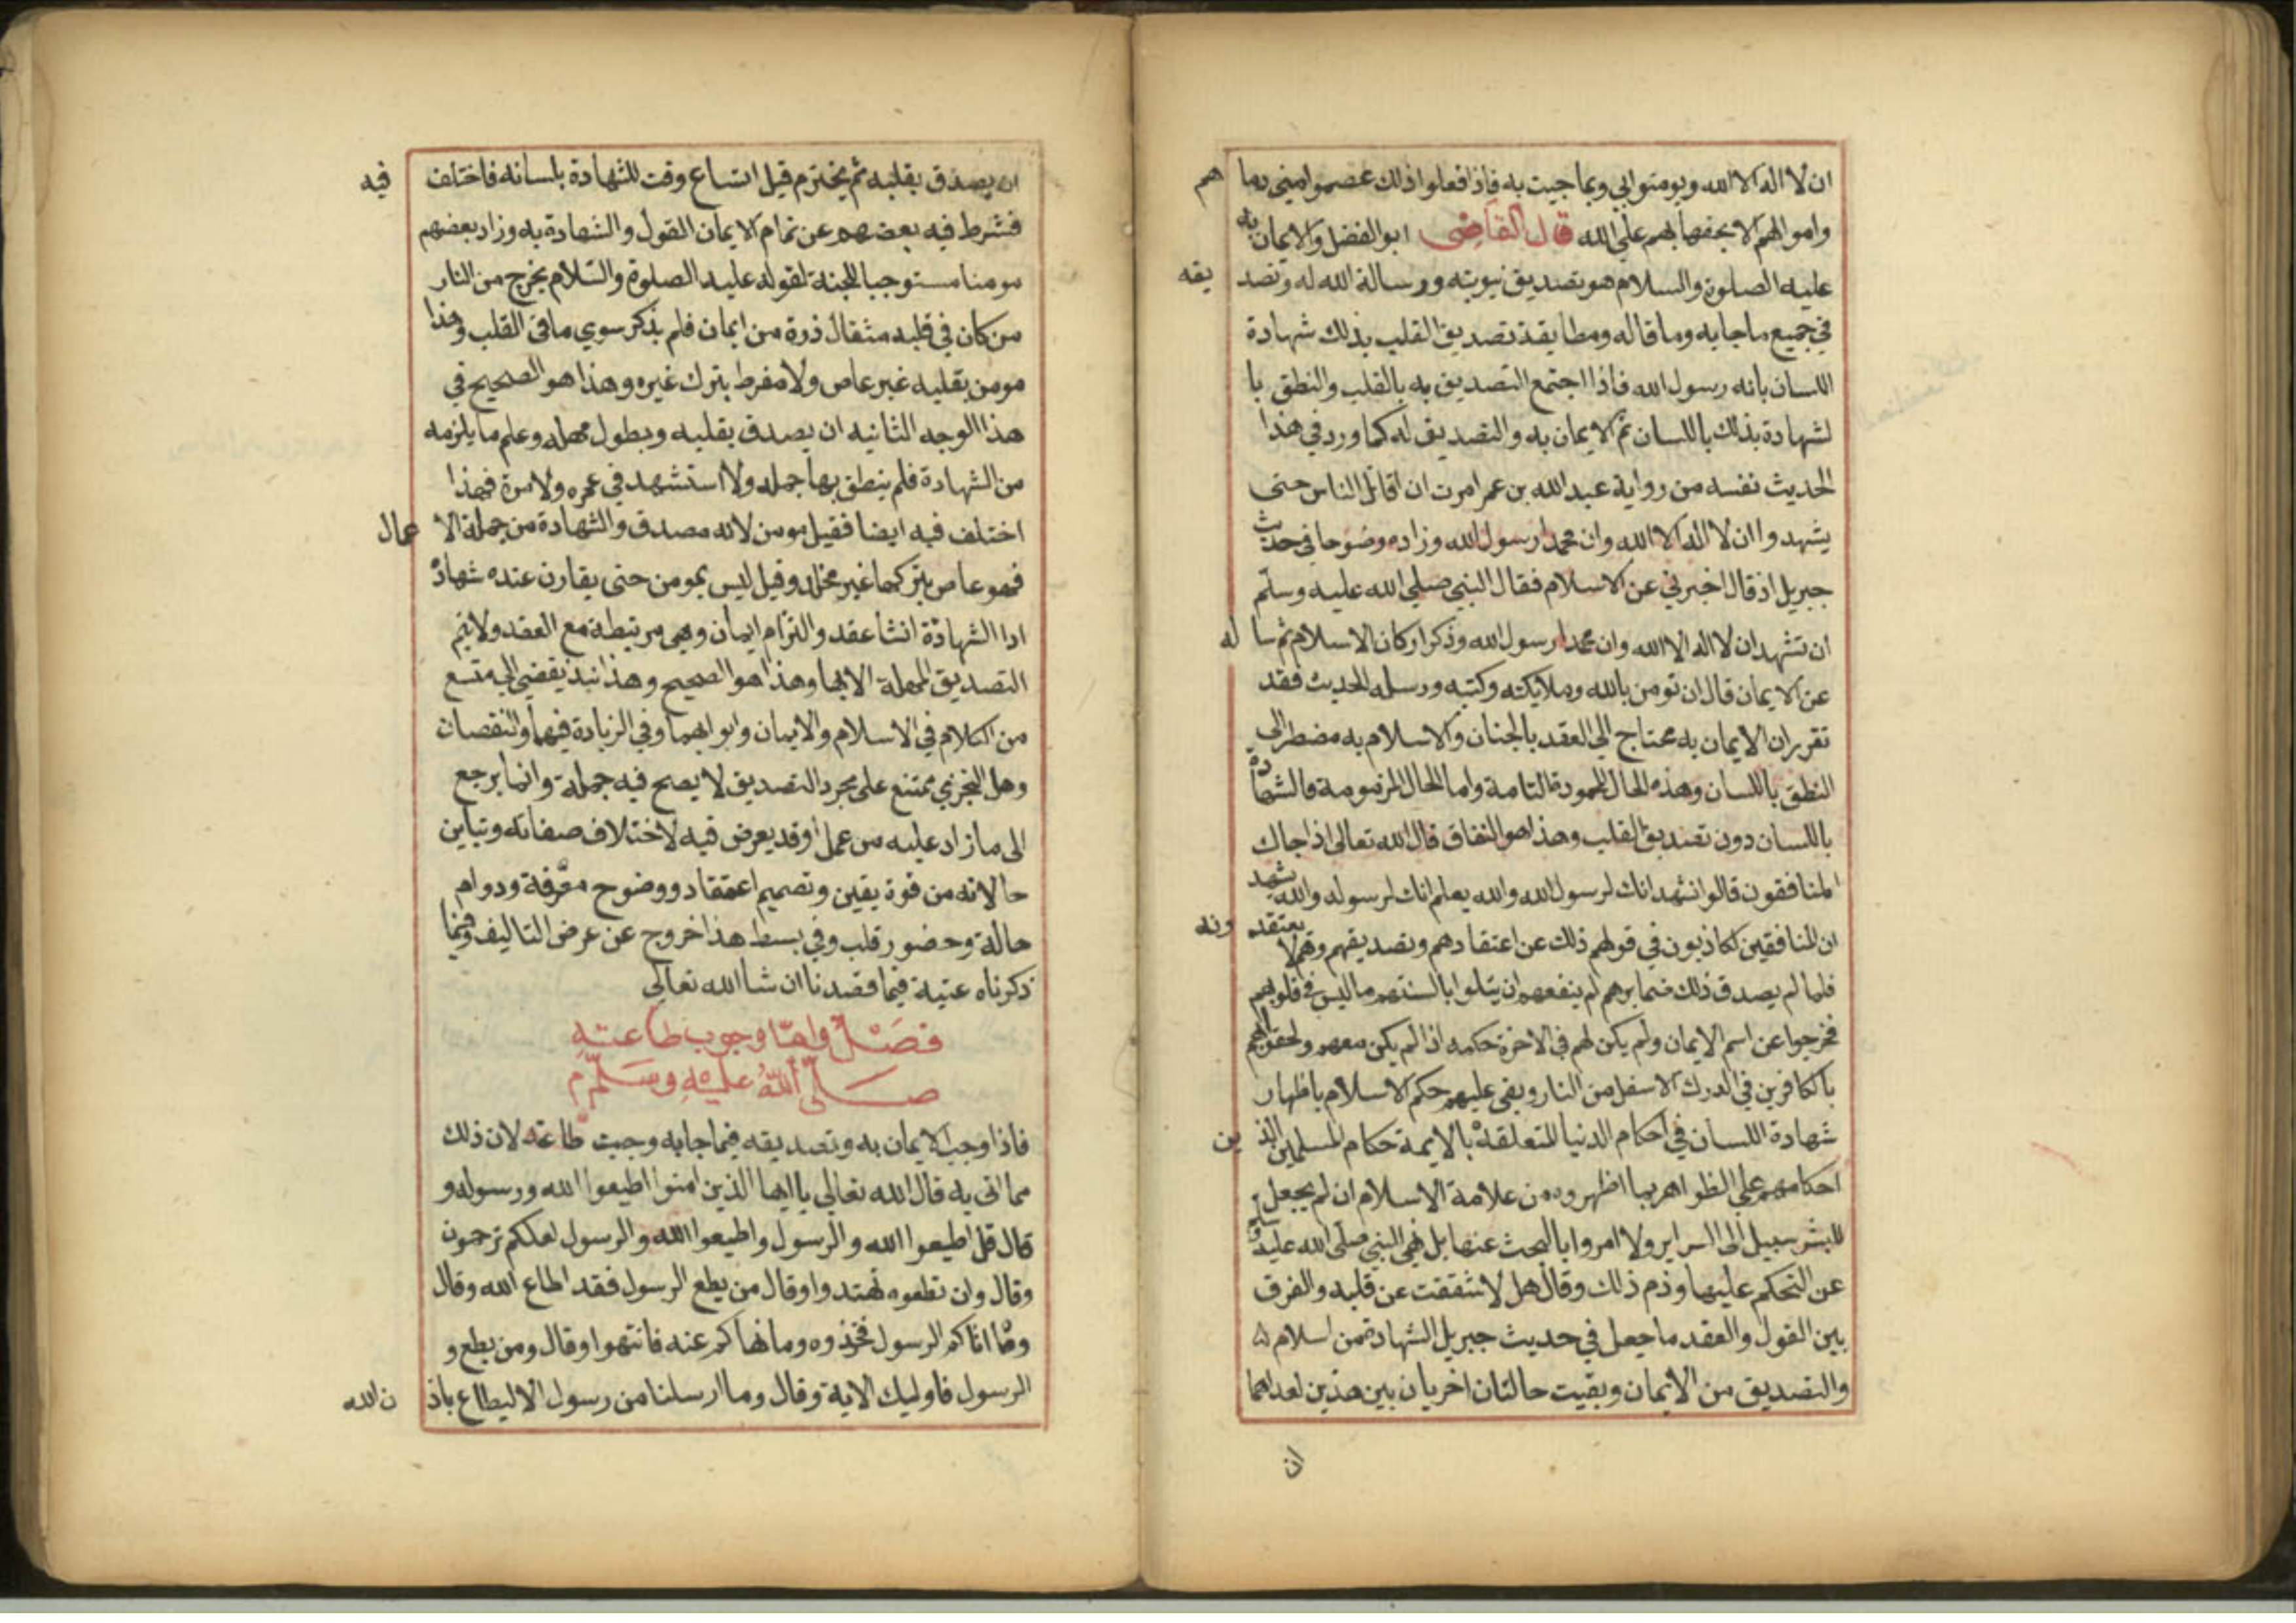 ان لا اله الا الله ويومنوا بي وبما جيت به فاذا فعلوا ذلك عصموا مني دماهم
واموالهم الا بحقها بهم على الله قال القاضي ابو الفضل والايمان به
عليه الصلوة والسلام هو تصديق نبوته ورسالة الله له وتصديقه
في جميع ما جا به وما قاله ومطابقة تصديق القلب بذلك شهادة
اللسان بانه رسول الله فاذا اجتمع التصديق به بالقلب والنطق با
لشهادة بذلك باللسان تم الايمان به والتصديق له كما ورد في هذا
الحديث نفسه من رواية عبد الله بن عمر امرت ان اقاتل الناس حتى
يشهدوا ان لا اله الا الله وان محمدا رسول الله وزاده وضوحا في حديث
جبريل اذ قال اخبرني عن الاسلام فقال النبي صلي الله عليه وسلم
ان تشهد ان لا اله الا الله وان محمدا رسول الله وذكر اركان الاسلام ثم ساله
عن الايمان قال ان تومن بالله وملايكته وكتبه ورسله الحديث فقد
تقرر ان الايمان به محتاج الي العقد بالجنان والاسلام به مضطر الي
النطق باللسان وهذه الحال المحمودة التامة واما الحال المذمومة فالشهادة
باللسان دون تصديق القلب وهذا هو النفاق قال الله تعالى اذا جاك
المنافقون قالوا نشهد انك لرسول الله والله يعلم انك لرسوله والله يشهد
ان المنافقين لكاذبون في قولهم ذلك عن اعتقادهم وتصديقهم وهم لا يعتقدونه
فلما لم يصدق ذلك ضمايرهم لم ينفعهم ان يتلوا بالسنتهم ما ليس في قلوبهم
فخرجوا عن اسم الايمان ولم يكن لهم في الاخرة حكمه اذ لم يكن معهم ولحقوا
بالكافرين في الدرك الاسفل من النار وبقي عليهم حكم الاسلام باظهار
شهادة اللسان في احكام الدنيا المتعلقة بالايمة حكام المسلمين الذين
احكامهم علي الظواهر بما اظهروه من علامة الاسلام ان لم يجعل
للبشر سبيل الى السراير ولا امروا بالبحث عنها بل نهي النبي صلى الله عليه وسلم
عن التحكم عليها وذم ذلك وقال هل لا شققت عن قلبه والفرق
بين القول والعقد ما جعل في حديث جبريل الشهادة من اسلام
والتصديق من الايمان وبقيت حالتان اخريان بين هذين احداهما
ان
ان يصدق بقلبه ثم يخترم قبل اتساع وقت للشهادة بلسانه فاختلف فيه
فشرط فيه بعضهم عن تمام الايمان القول والشهادة به وزاد بعضهم
مومنا مستوجبا للجنة لقوله عليه الصلوة والسلام يخرج من النار
من كان في قلبه مثقال ذرة من ايمان فلم يذكر سوي ما في القلب وهذا
مومن بقلبه غير عاص ولا مفرط بترك غيره وهذا هو الصحيح في
هذا الوجه الثانيه ان يصدق بقلبه ويطول مهله وعلم ما يلزمه
من الشهادة فلم ينطق بها جمله ولا استشهد في عمره ولا مرة فهذا
اختلف فيه ايضا فقيل مومن لانه مصدق والشهادة من جملة الاعمال
فهو عاص بتركها غير مخلد وقيل ليس بمومن حتى يقارن عنده شهادة
اذ الشهادة انشا عقد والتزام ايمان وهي مرتبطة مع العقد ولا يتم
التصديق المهلة الا بها وهذا هو الصحيح وهذا نبذ يفضي الي متسع
من الكلام في الاسلام والايمان وابوابهما وفي الزيادة فيهما والنقصان
وهل التجزي ممتنع على مجرد التصديق لا يصح فيه جملة وانما يرجع
الى ما زاد عليه من عمل او قد يعرض فيه لاختلاف صفاته وتباين
حالاته من قوة يقين وتصميم اعتقاد ووضوح معرفة ودوام
حالة وحضور قلب وفي بسط هذا خروج عن غرض التاليف وفيما
ذكرناه غنية فيما قصدنا ان شا الله تعالي
فصل واما وجوب طاعته
صلى الله عليه وسلم
فاذا وجب الايمان به وتصديقه فيما جا به وجبت طاعته لان ذلك
مما اتى به قال الله تعالي يا ايها الذين امنوا اطيعوا الله ورسوله و
قال قل اطيعوا الله والرسول واطيعوا الله والرسول لعلكم ترحمون
وقال وان تطعوه تهتدوا وقال من يطع الرسول فقد اطاع الله وقال
وما اتاكم الرسول فخذوه وما نهاكم عنه فانتهوا وقال ومن يطع و
الرسول فاوليك الاية وقال وما ارسلنا من رسول الا ليطاع باذن الله